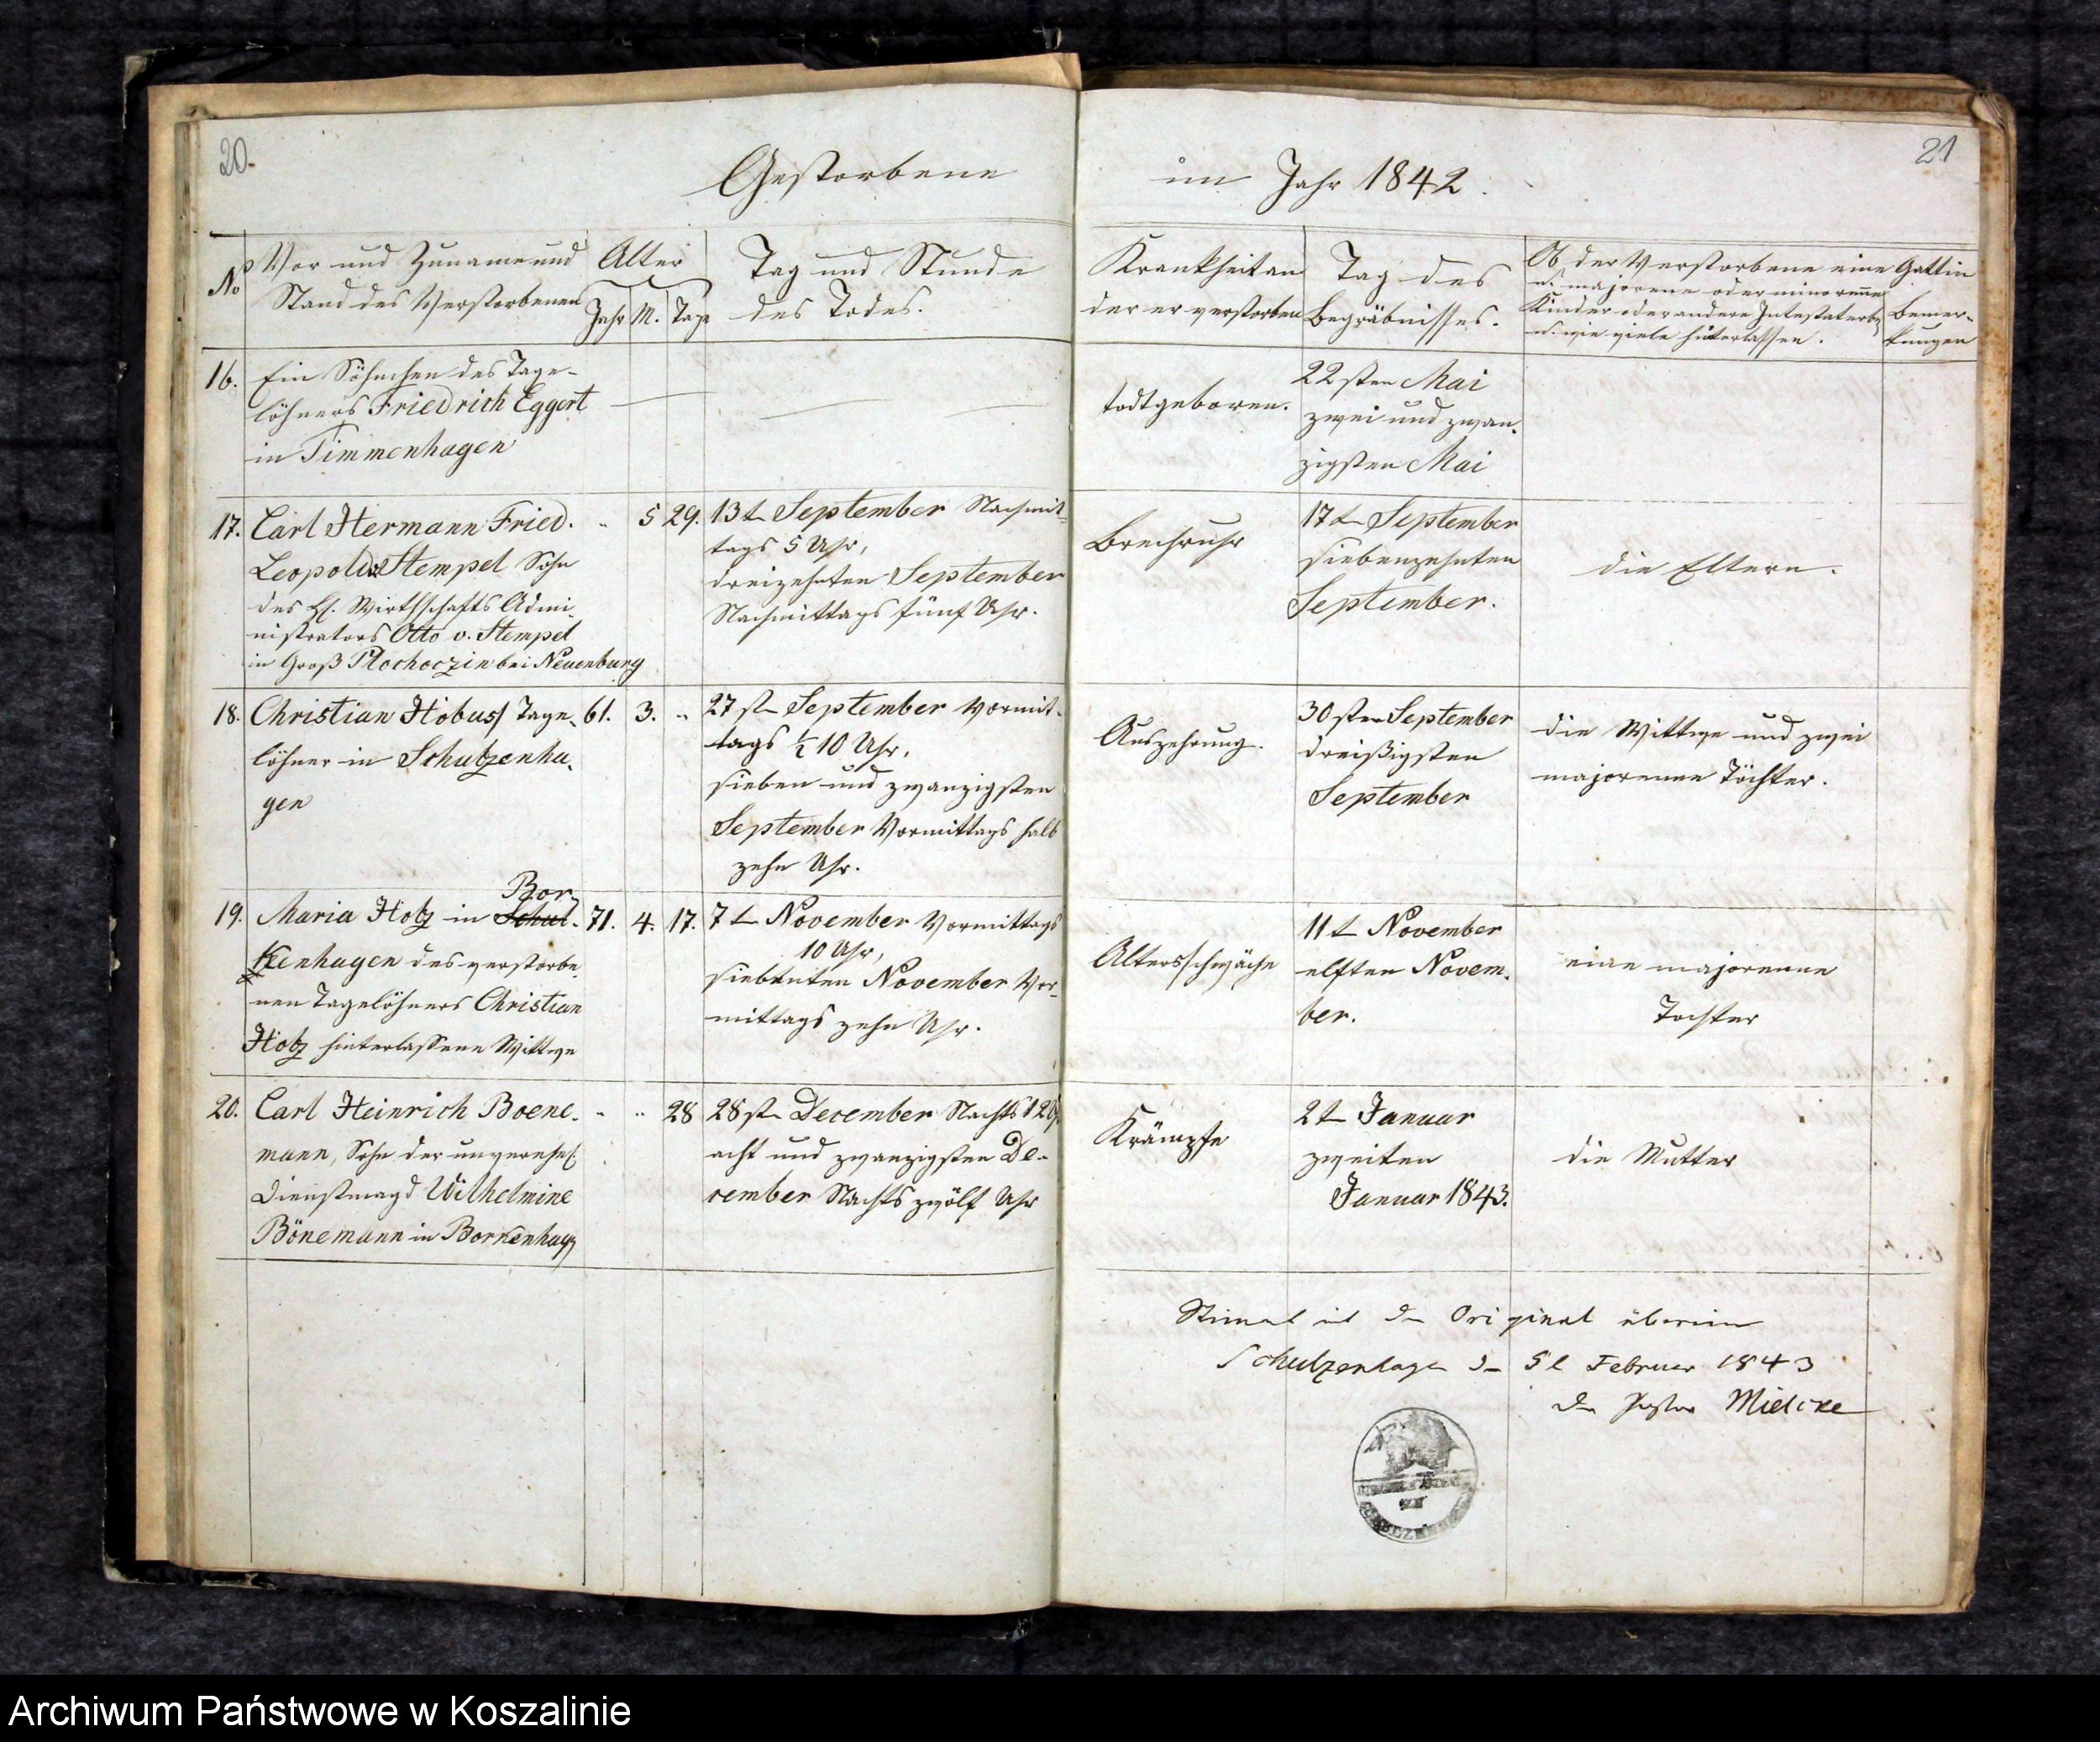 20.
Gestorbene
No
Vor und Zuname und
Stand des Verstorbenen
Alter
Jahr M. Tage
Tag und Stunde
des Todes.
16. Ein Söhnchen des Tage-
löhners Friedrich Eggert
in Timmenhagen
17. Carl Hermann Fried.
Leopold Stempel Sohn
des H. Wirthschafts Admi-
nistrators Otto v. Stempel
in Groß Plochoczin bei Neuenburg
" 5 29.
13t September Nachmit-
tags 5 Uhr,
dreizehnten September
Nachmittags fünf Uhr.
18. Christian Hobus, Tage-
löhner in Schulzenha-
gen
61. 3. "
27st September Vormit-
tags ½ 10 Uhr,
sieben und zwanzigsten
September Vormittags halb
zehn Uhr.
Bor
19. Maria Hotz in Schul-
kenhagen des verstorbe-
nen Tagelöhners Christian
Hotz hinterlassene Wittwe
71. 4. 17.
7t November Vormittags
10 Uhr,
siebenten November Vor-
mittags zehn Uhr.
20. Carl Heinrich Boene-
mann, Sohn der unverehel.
Dienstmagd Wilhelmine
Bönemann in Borkenhag
" " 28
28st December Nachts 12 U.
acht und zwanzigsten De-
cember Nachts zwölf Uhr
21
im Jahr 1842.
Krankheit an
der er verstorben
Tag des
Begräbnisses.
Ob der Verstorbene eine Gattin
u. majorene oder minorenne
Kinder oder andere Intestaterb.
u. wie viele hinterlassen.
Bemer-
kungen
todtgeboren.
22sten Mai
zwei und zwan-
zigsten Mai
Brechruhr
17t September
siebenzehnten
September.
die Eltern.
Auszehrung.
30sten September
dreißigsten
September
die Wittwe und zwei
majorenne Töchter.
Altersschwäche
11t November
elften Novem-
ber.
eine majorenne
Tochter
Krämpfe
2t Januar
zweiten
Januar 1843.
die Mutter
Stimmt mit dem Original überein
Schulzenhagen den 5t Februar 1843
Der Pastor Mielcke
Archiwum Państwowe w Koszalinie